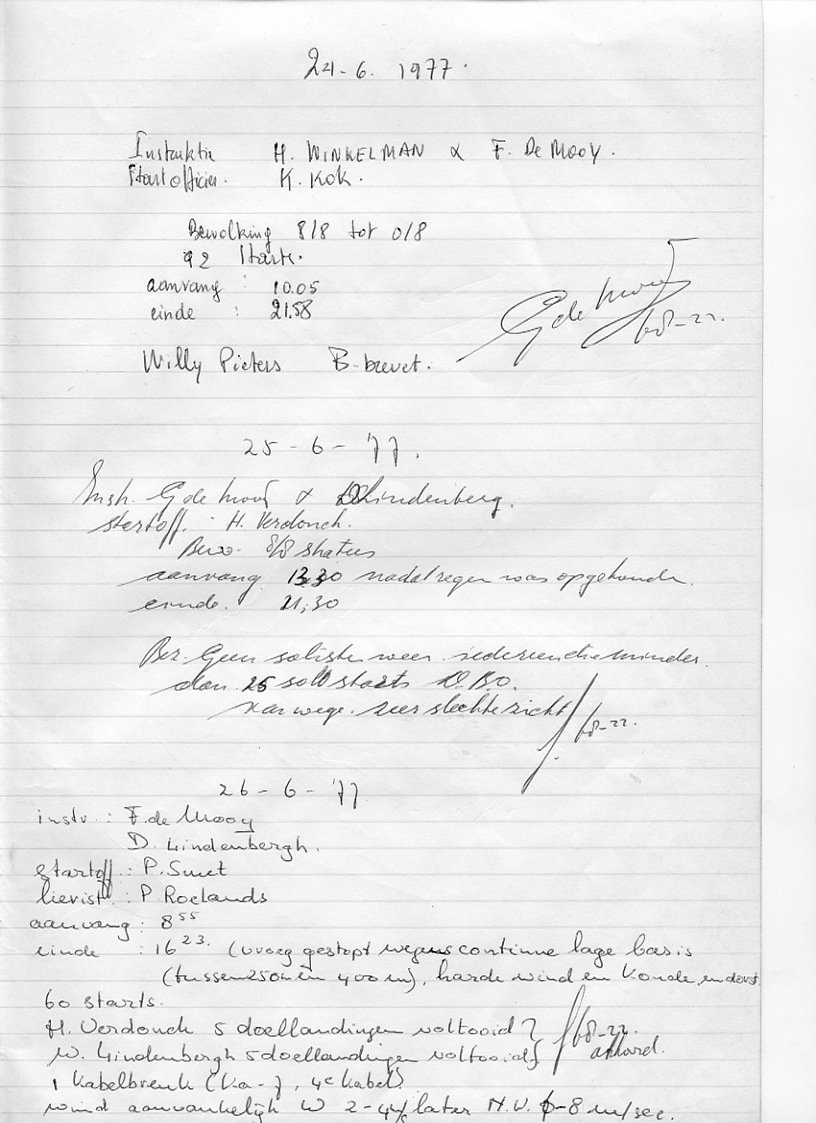 24-6. 1977.
Instruktie H. WINKELMAN & F. De Mooy.
Startofficier. K. KOK.
Bewolking 8/8 tot 0/8
92 Starts.
aanvang : 10.05
einde : 21.58
G de Mooij 68-22.
Willy Pieters B-brevet.
25-6-'77.
Instr. G de Mooij & D Lindenberg.
startoff. H. Verdonck.
Bew. 8/8 stratus
aanvang 13,30 nadat regen was opgehouden.
einde. 21,30
Bez. Geen solisten weer iedereen die minder
dan 25 solo starts D.B.O.
vanwege zeer slechte zicht
68-22.
26-6-'77
instr. : F. de Mooy
D. Lindenbergh.
startoff : P. Smet
lierist : P. Roelands
aanvang : 8 55
einde : 16 23. (vroeg gestopt wegens continue lage basis
(tussen 250m en 400 m), harde wind en koude
60 starts.
H. Verdonck 5 doellandingen voltooid } 68-22.
W. Lindenbergh 5 doellandingen voltooid } akkoord.
1 kabelbreuk (Ka-7, 4e kabel)
wind aanvankelijk W 2-4 later N.W. 6-8 m/sec.